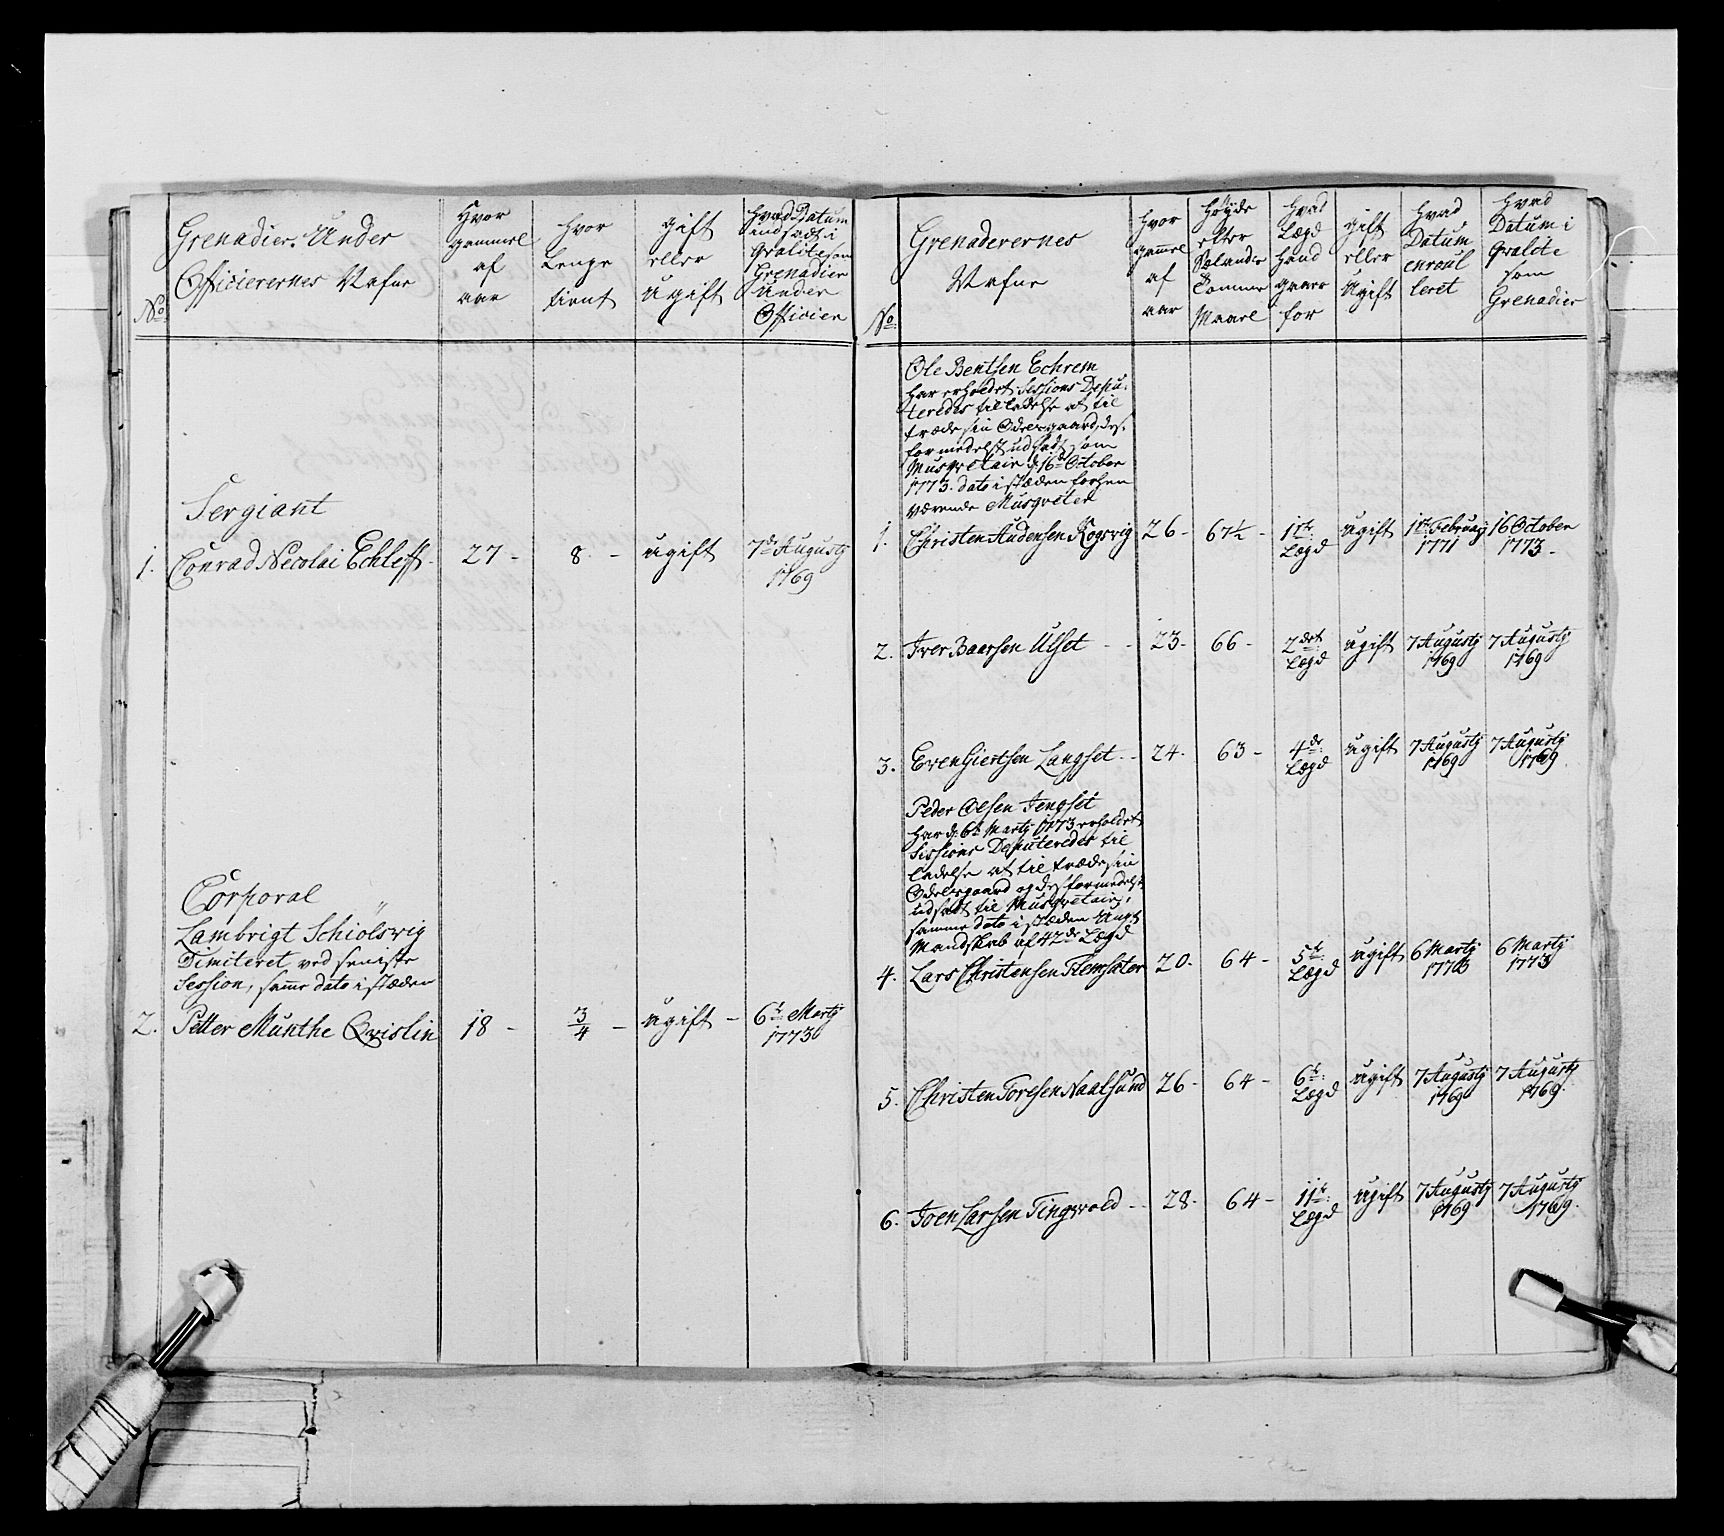 Grenadier-Under
Officierernes Nafne
No
Hvor
gammel
af
aar
hvor
Lenge
tient
gift
eller
Ugift
hvad Datum
indsadt i
Qvalite som
Grenadier
Under
Officier
Sergiant
1. Conrad Necolai Echleff. 27 - 8 - ugift 7de Augusty
1769
Corporal
Lambrigt Schiölsvig
Dimiteret ved seniste
Session, samme dato i stæden
2. Petter Munthe Qvislin 18 - 3/4 - ugift - 6te Marty
1773
Grenaderernes
Nafne
No
hvor
gamel
af
aar
Høyde
efter
Sælandse
Tomme
Maael
hvad
Lægd
hand
gaaer
for
gift
eller
Ugift
hvad
Datum
enroul
leret
hvad
Datum i
Qvalite
som
Grenadier
Ole Bentsen Echrem
har erholdet Sessions Depu-
teredes tilladelse at til
træde sin Odelsgaard, des-
formedelst udsadt som
Musqvetair d: 16de October
1773. dato i stæden forhen
værende Musqveter
1. Christen Audensen Rogsvig 26 - 67½ - 1ste Lægd ugift 1ste February 1771 16 October 1773 -
2. Iver Baarsen Ulset - - 23 - 66 - 2det Lægd ugift 7 Augusty 1769 7 Augusty 1769
3. Even Giertsen Langset - - 24 - 63 - 4de Lægd ugift 7 Augusty 1769 7 Augusty 1769
Peder Olsen Jengset
har d: 6te Marty 1773 erholdet
Sessions Deputeredes til
ladelse at til træde sin
Odelsgaard og desformedelst
udsadt til Musqvetair,
samme dato i stæden Ungt
Mandskab af 42de Lægd
4. Lars Christensen Flemsæter 20 - 64 - 5te Lægd ugift 6 Marty 1773 6 Marty 1773
5. Christen Toresen Naalsund 26 - 64 - 6te Lægd ugift 7 Augusty 1769 7 Augusty 1769
6. Joen Larsen Tingvold - - 28 - 64 - 11te Lægd ugift 7 Augusty 1769 7 Augusty 1769